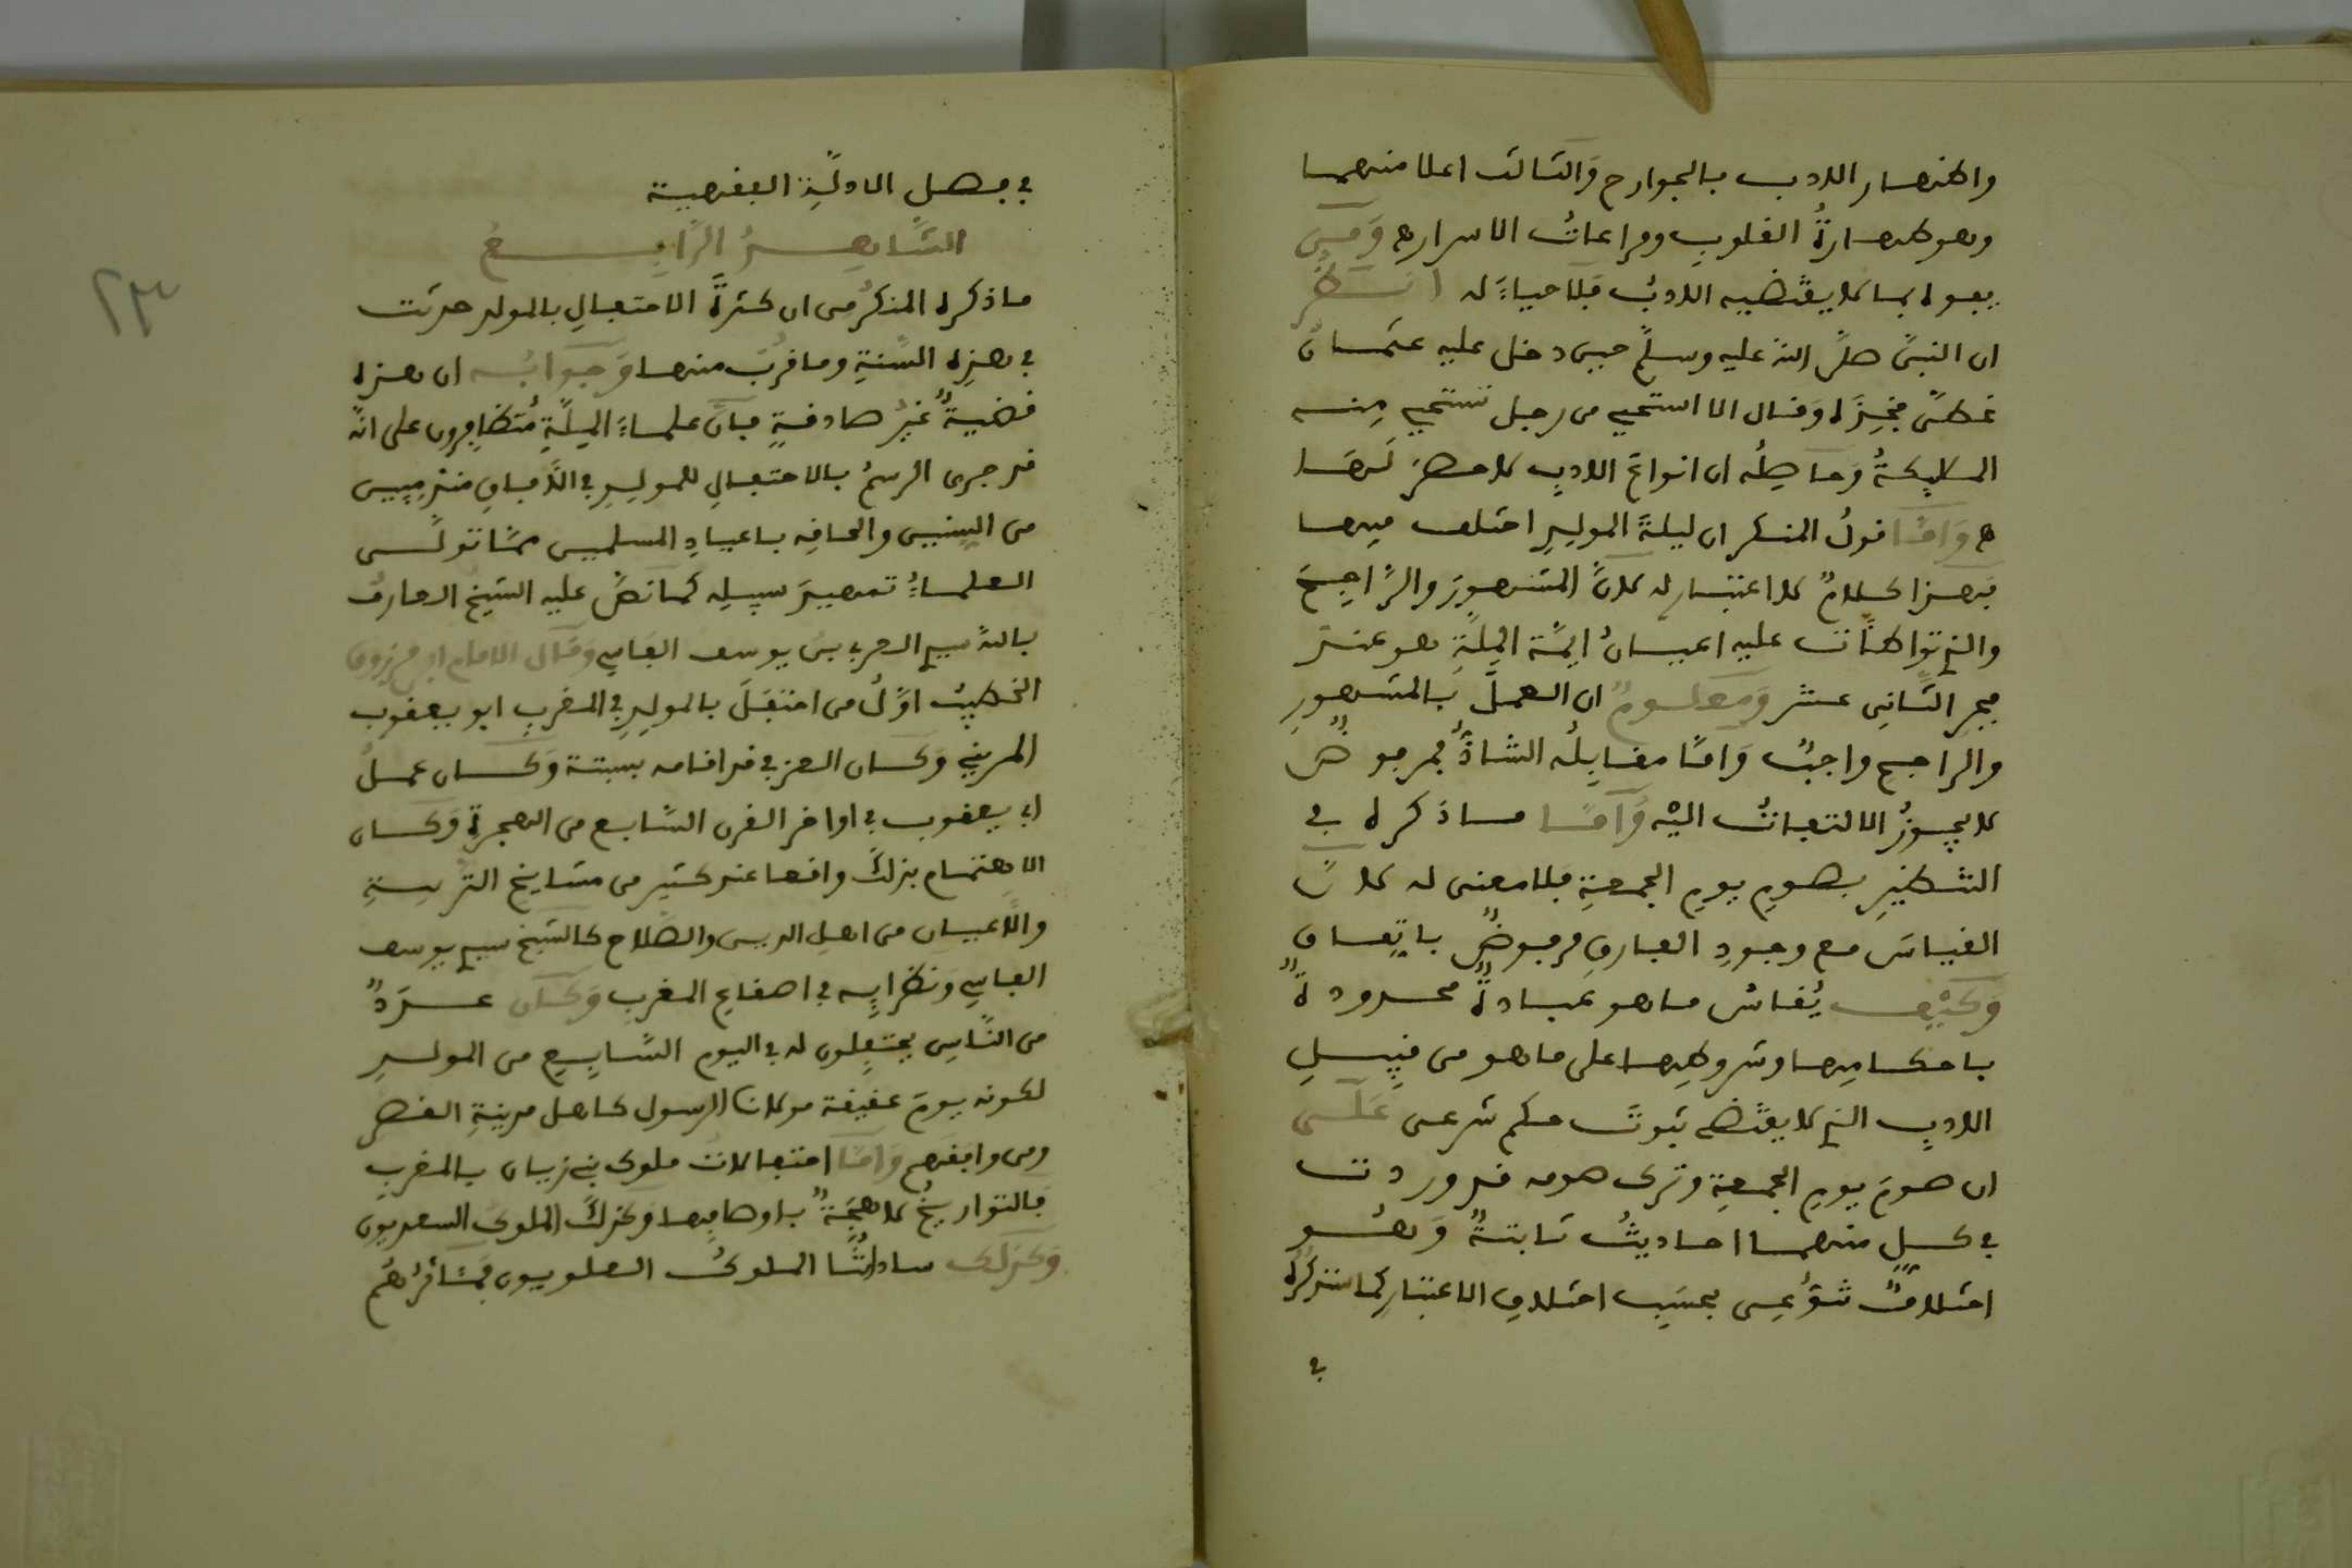 واظهار الادب بالجوارح وَالثالث اعلا منهما
وهو طهارةُ القلوب ومراعاتُ الاسرار ه وَمن
يفوه بما لا يقتضيه الادبُ فلا حياءَ له انظر
ان النبيَّ صلَّى اللهُ عليه وسلَّم حين دخل عليه عثمان
غطَّى فخِذَه وَقال الا استحيي من رجل تستحيي منه
الملايكةُ وَحاصلُه ان انواعَ الادبِ لا حصرَ لَها
ه وَامَّا قولُ المنكر ان ليلةَ المولِدِ اختلف فيها
فهذا كلامٌ لا اعتبار له لانَّ المشهورَ والرَّاجِحَ
والذي تواطأت عليه اعيانُ ايمَّة المِلَّةِ هو عند
فجر الثَّاني عشر وَمعلومٌ ان العملَ بالمشهورِ
والراجح واجبٌ وَامَّا مقابِلُه الشاذُّ فمرفوضٌ
لا يجوزُ الالتفاتُ اليْه وَامَّا ما ذكره في
التنظيرِ بصومِ يومِ الجمعةِ فلا معنى له لانَّ
القياسَ مع وجودِ الفارقِ مرفوضٌ باتِّفاقٍ
وَكيْف يُقاسُ ما هو عبادةٌ محدودةٌ
باحكامِها وشروطِها على ما هو من قبِيلِ
الادبِ الذي لا يقتضي ثبوتَ حكم شرعى عَلَى
ان صومَ يومِ الجمعةِ وترك صومه قد وردت
في كلٍ منهما احاديثُ ثابتةٌ وَهُو
اختلافٌ شوُّعى بحسَبِ اختلافِ الاعتبار كما ستذكرُه
في
٢٣
في فصل الادلَّةِ الفقهية
الشَّاهدُ الرَّابِعُ
ما ذكره المنكرُ من ان كثرةَ الاحتفالِ بالمولد حدثت
في هذِه السَّنةِ وما قرُبَ منها وَجوابُه ان هذه
قضيةٌ غيْرُ صادقةٍ فإنَّ علماءَ المِلَّةِ مُتظافِرون على انَّه
قد جرى الرسمُ بالاحتفالِ للمولِدِ في الآفاقِ منذ مِيِين
من السِّنين والحاقه باعيادِ المسلمين ممَّا تولَّى
العلماءُ تمهيدَ سبيلِه كما نصَّ عليه الشيخُ العارفُ
بالله سيدي العربي بن يوسف الفاسي وَقال الامام ابن مرزوق
الخطِيبُ اوَّلُ من احتفَلَ بالمولِدِ في المغربِ ابو يعقوب
المريني وَكان العزفي قد اقامه بسبتة وَكان عملُ
ابي يعقوب في اواخر القرن السَّابع من الهجرةِ وَكان
الاهتمام بذلكَ واقعا عند كثير من مشايخِ التربيةِ
والاعيان من اهلِ الدين والصَّلاح كالشيخ سيدي يوسف
الفاسي وَنظرايِه في اصقاع المغرب وَكان عددٌ
من النَّاسِ يحتفِلون له في اليوم السَّابِعِ من المولدِ
لكونه يومَ عقيقة مولانا الرسول كاهل مدينةِ القصر
ومن وافقهم وَامَّا احتفالاتُ ملوك بني زيان بالمغرب
فالتواريخُ لاهجَةٌ باوصافِها وَكذلكَ الملوك السعديون
وَكذلك ساداتُنَا الملوكُ العلويون فمئَاثرُهُم